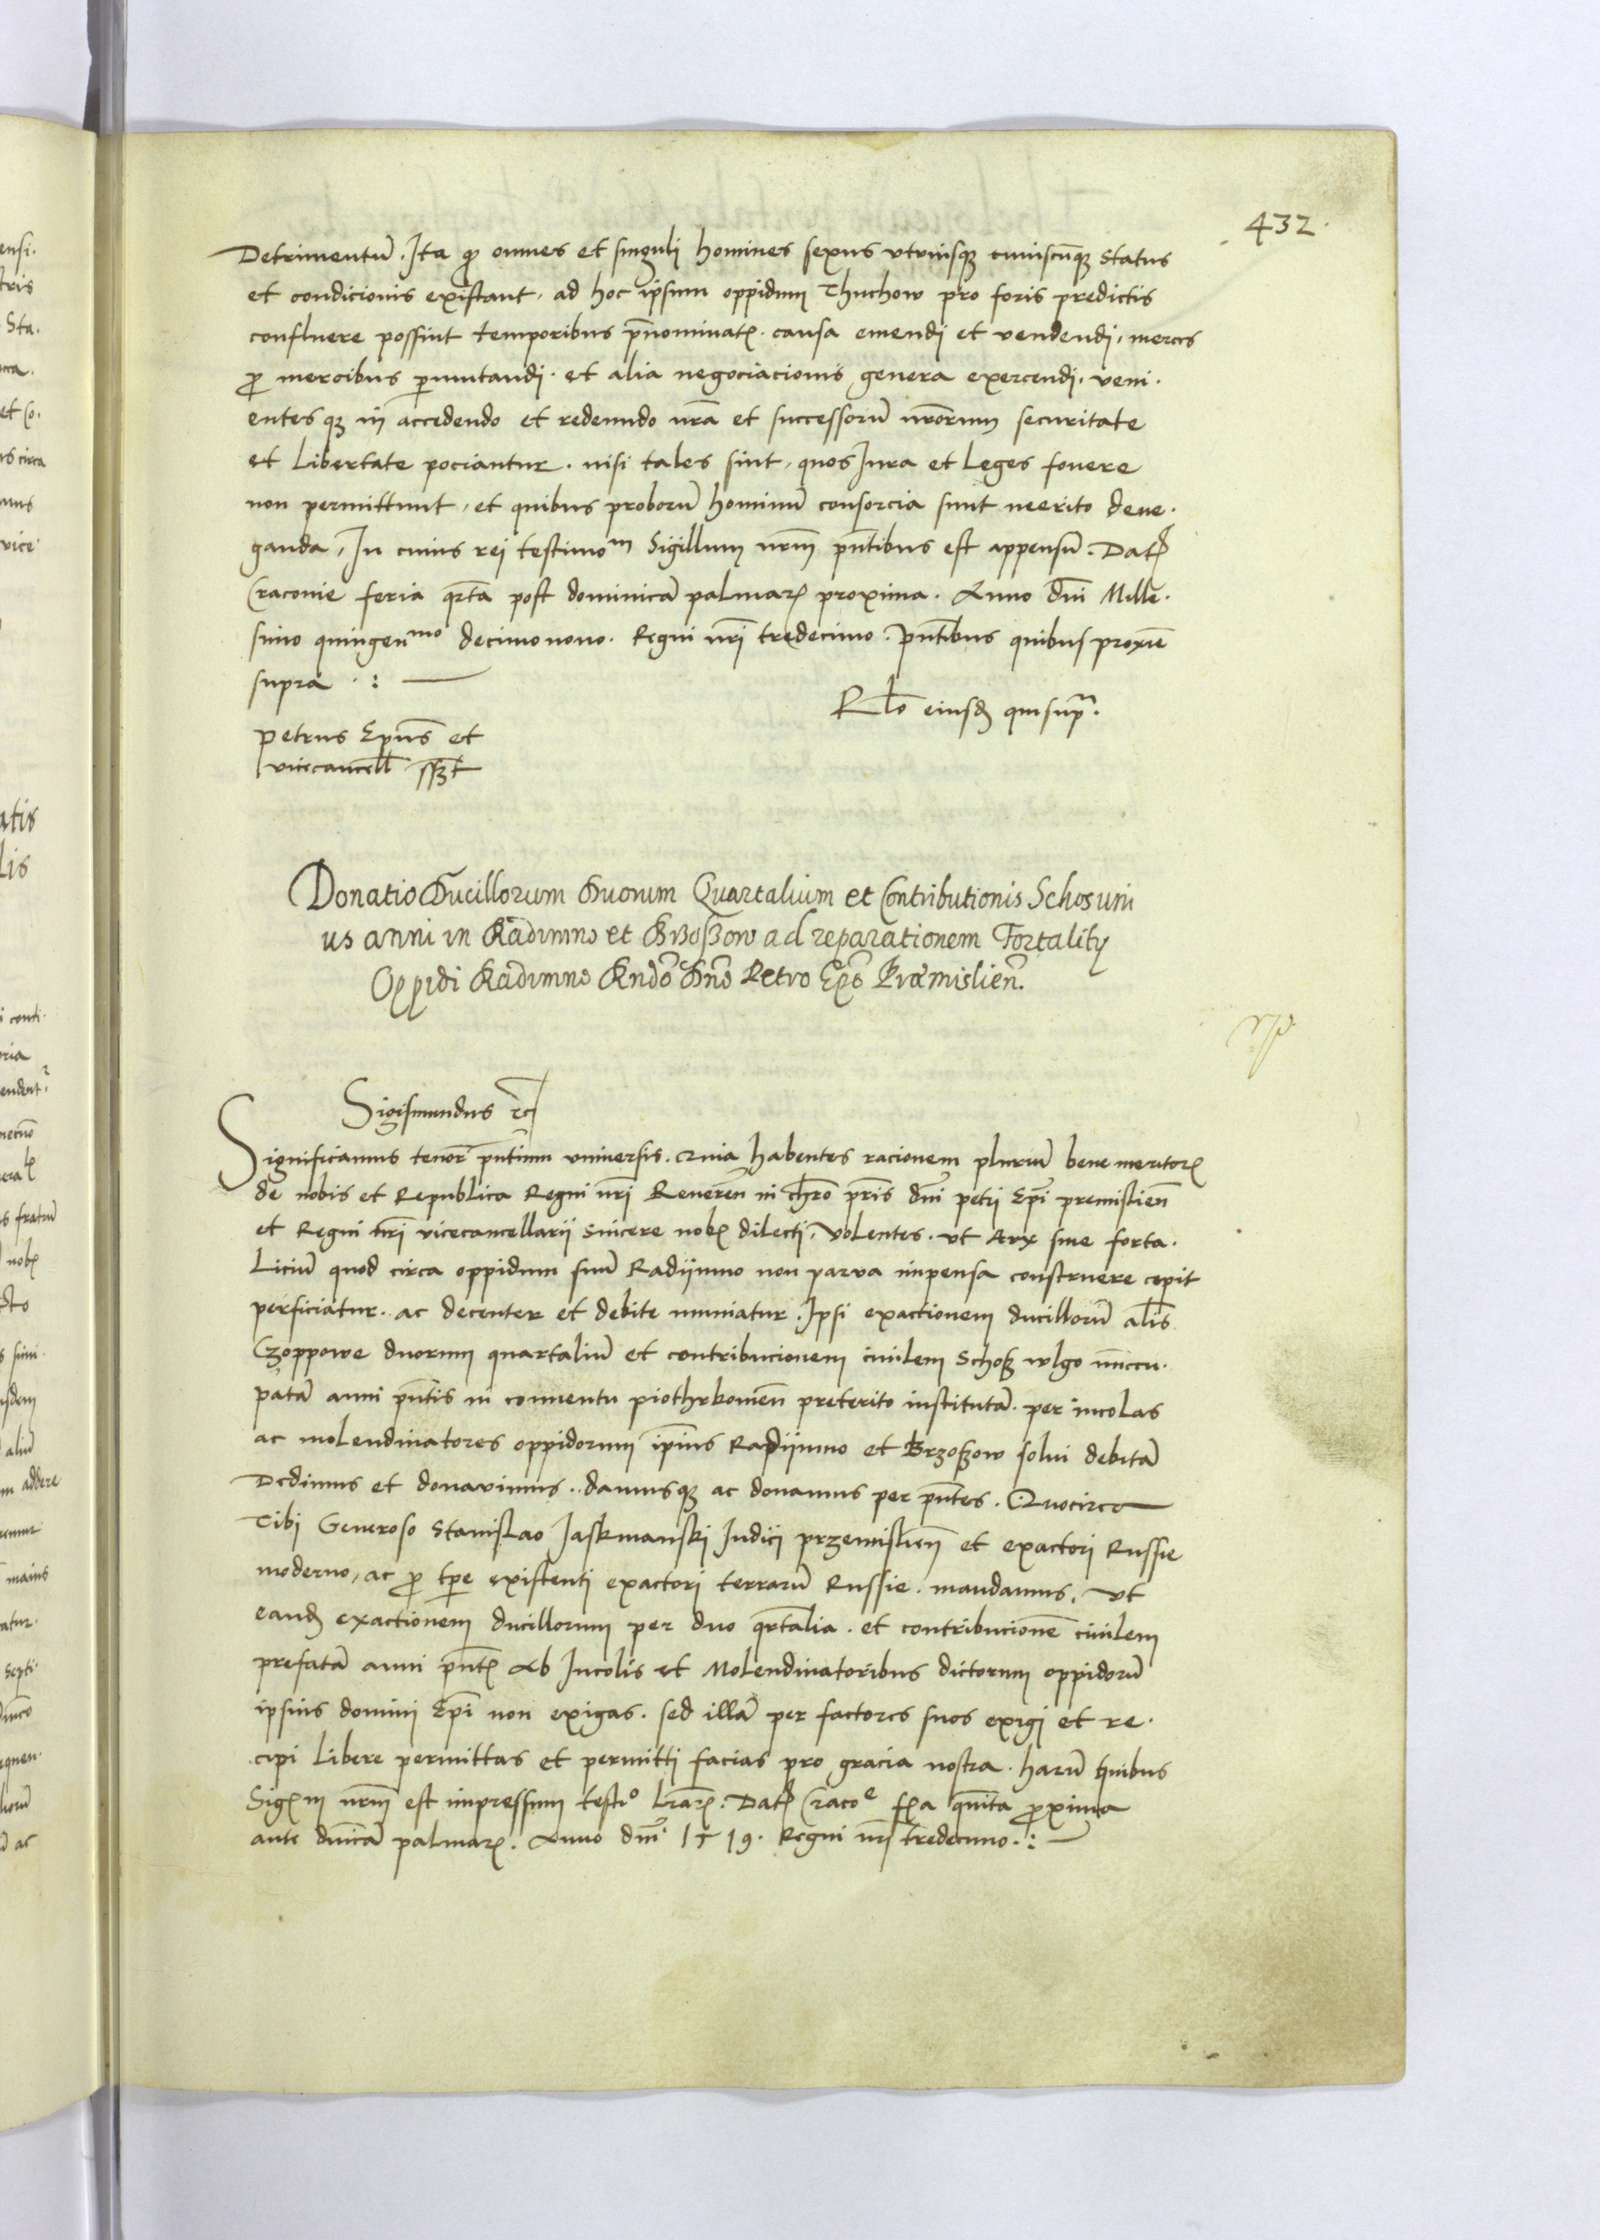 432
Detrimentū. Ita ꝙ omnes et singuli homines sexus utriusqȝ cuiuscūqȝ status
et condicionis existant, ad hoc ipsum oppidum Thuchow pro foris predictis
confluere possint temporibus p̄nominatꝭ. causa emendi et vendendi, merces
ꝓ mercibus ꝑmutandi. et alia negociacionis genera exercendi. veni.
entesqȝ in accedendo et redeundo nr̄a et successorū nr̄orum securitate
et Libertate pociantur. nisi tales sint, quos Iura et Leges fovere
non permittunt, et quibus proborū hominū consorcia sunt merito dene.
ganda, In cuius rei testimoᵐ Sigillum nr̄m pn̄tibus est appensū. Datꝭ
Cracovie feria qr̄ta post dominicā palmarꝭ proxima. Anno dn̄i Mille.
simo quingenᵐᵒ decimonono. Regni nr̄i tredecimo. Pn̄tibus quibus proxīe
supra .:
Rl̄o eiusdē qui supͣ.
Petrus Ep̄us et
vicecancell̄ ssȝt
Donatio Ducillorum Duorum Quartalium et Contributionis Schos uni
us anni in Radimno et Brzoßow ad reparationem Fortality
Oppidi Radimno Rndō Dn̄o Petro Epō Præmislien̄.
Sigismundus rc̄
Significamus tenor̄ pn̄tium universis. Quia habentes racionem plurīū bene meritorꝭ
de nobis et Republica Regni nr̄i Reveren̄ in chr̄o pr̄is dn̄i petri Ep̄i premislien̄
et Regni nr̄i vicecancellarii sincere nobꝭ dilecti, Volentes. ut Arx sive forta.
Liciū quod circa oppidum suū Radijmno non parva impensa construere cepit
perficiatur. ac decenter et debite muniatur. Ipsi exactionem ducillorū al̄s
Czoppowe duorum quartaliū et contribucionem civilem Schoß wlgo nūccu.
patā anni pn̄tis in conventu piothrkovien̄ preterito institutā. per incolas
ac molendinatores oppidorum ip̄ius Radijmno et Brzoßow solvi debitā
Dedimus et donavimus. damusqȝ ac donamus per pn̄tes. Quocirca
Tibi Generoso Stanislao Jaskmanski Iudici przemislien̄ et exactori Russie
moderno, ac ꝓ tp̄e existenti exactori terrarū Russie. mandamus. Ut
eandē exactionem ducillorum per duo qr̄talia. et contribucionē civilem
prefatā anni pn̄tꝭ Ab Incolis et Molendinatoribus dictorum oppidorū
ipsius domini Ep̄i non exigas. sed illā per factores suos exigi et re.
cipi Libere permittas et permitti facias pro gracia nostra. harū quibus
Sigꝭm nr̄m est impressum testiᵒ Lr̄arꝭ. Datꝭ Cracoᵉ fꝭa quīta ꝓxima
ante dn̄icā palmarꝭ. Anno dn̄i 1519. Regni nr̄i tredecimo .: